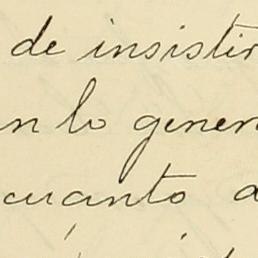 de insistir
n lo gener
cuanto a